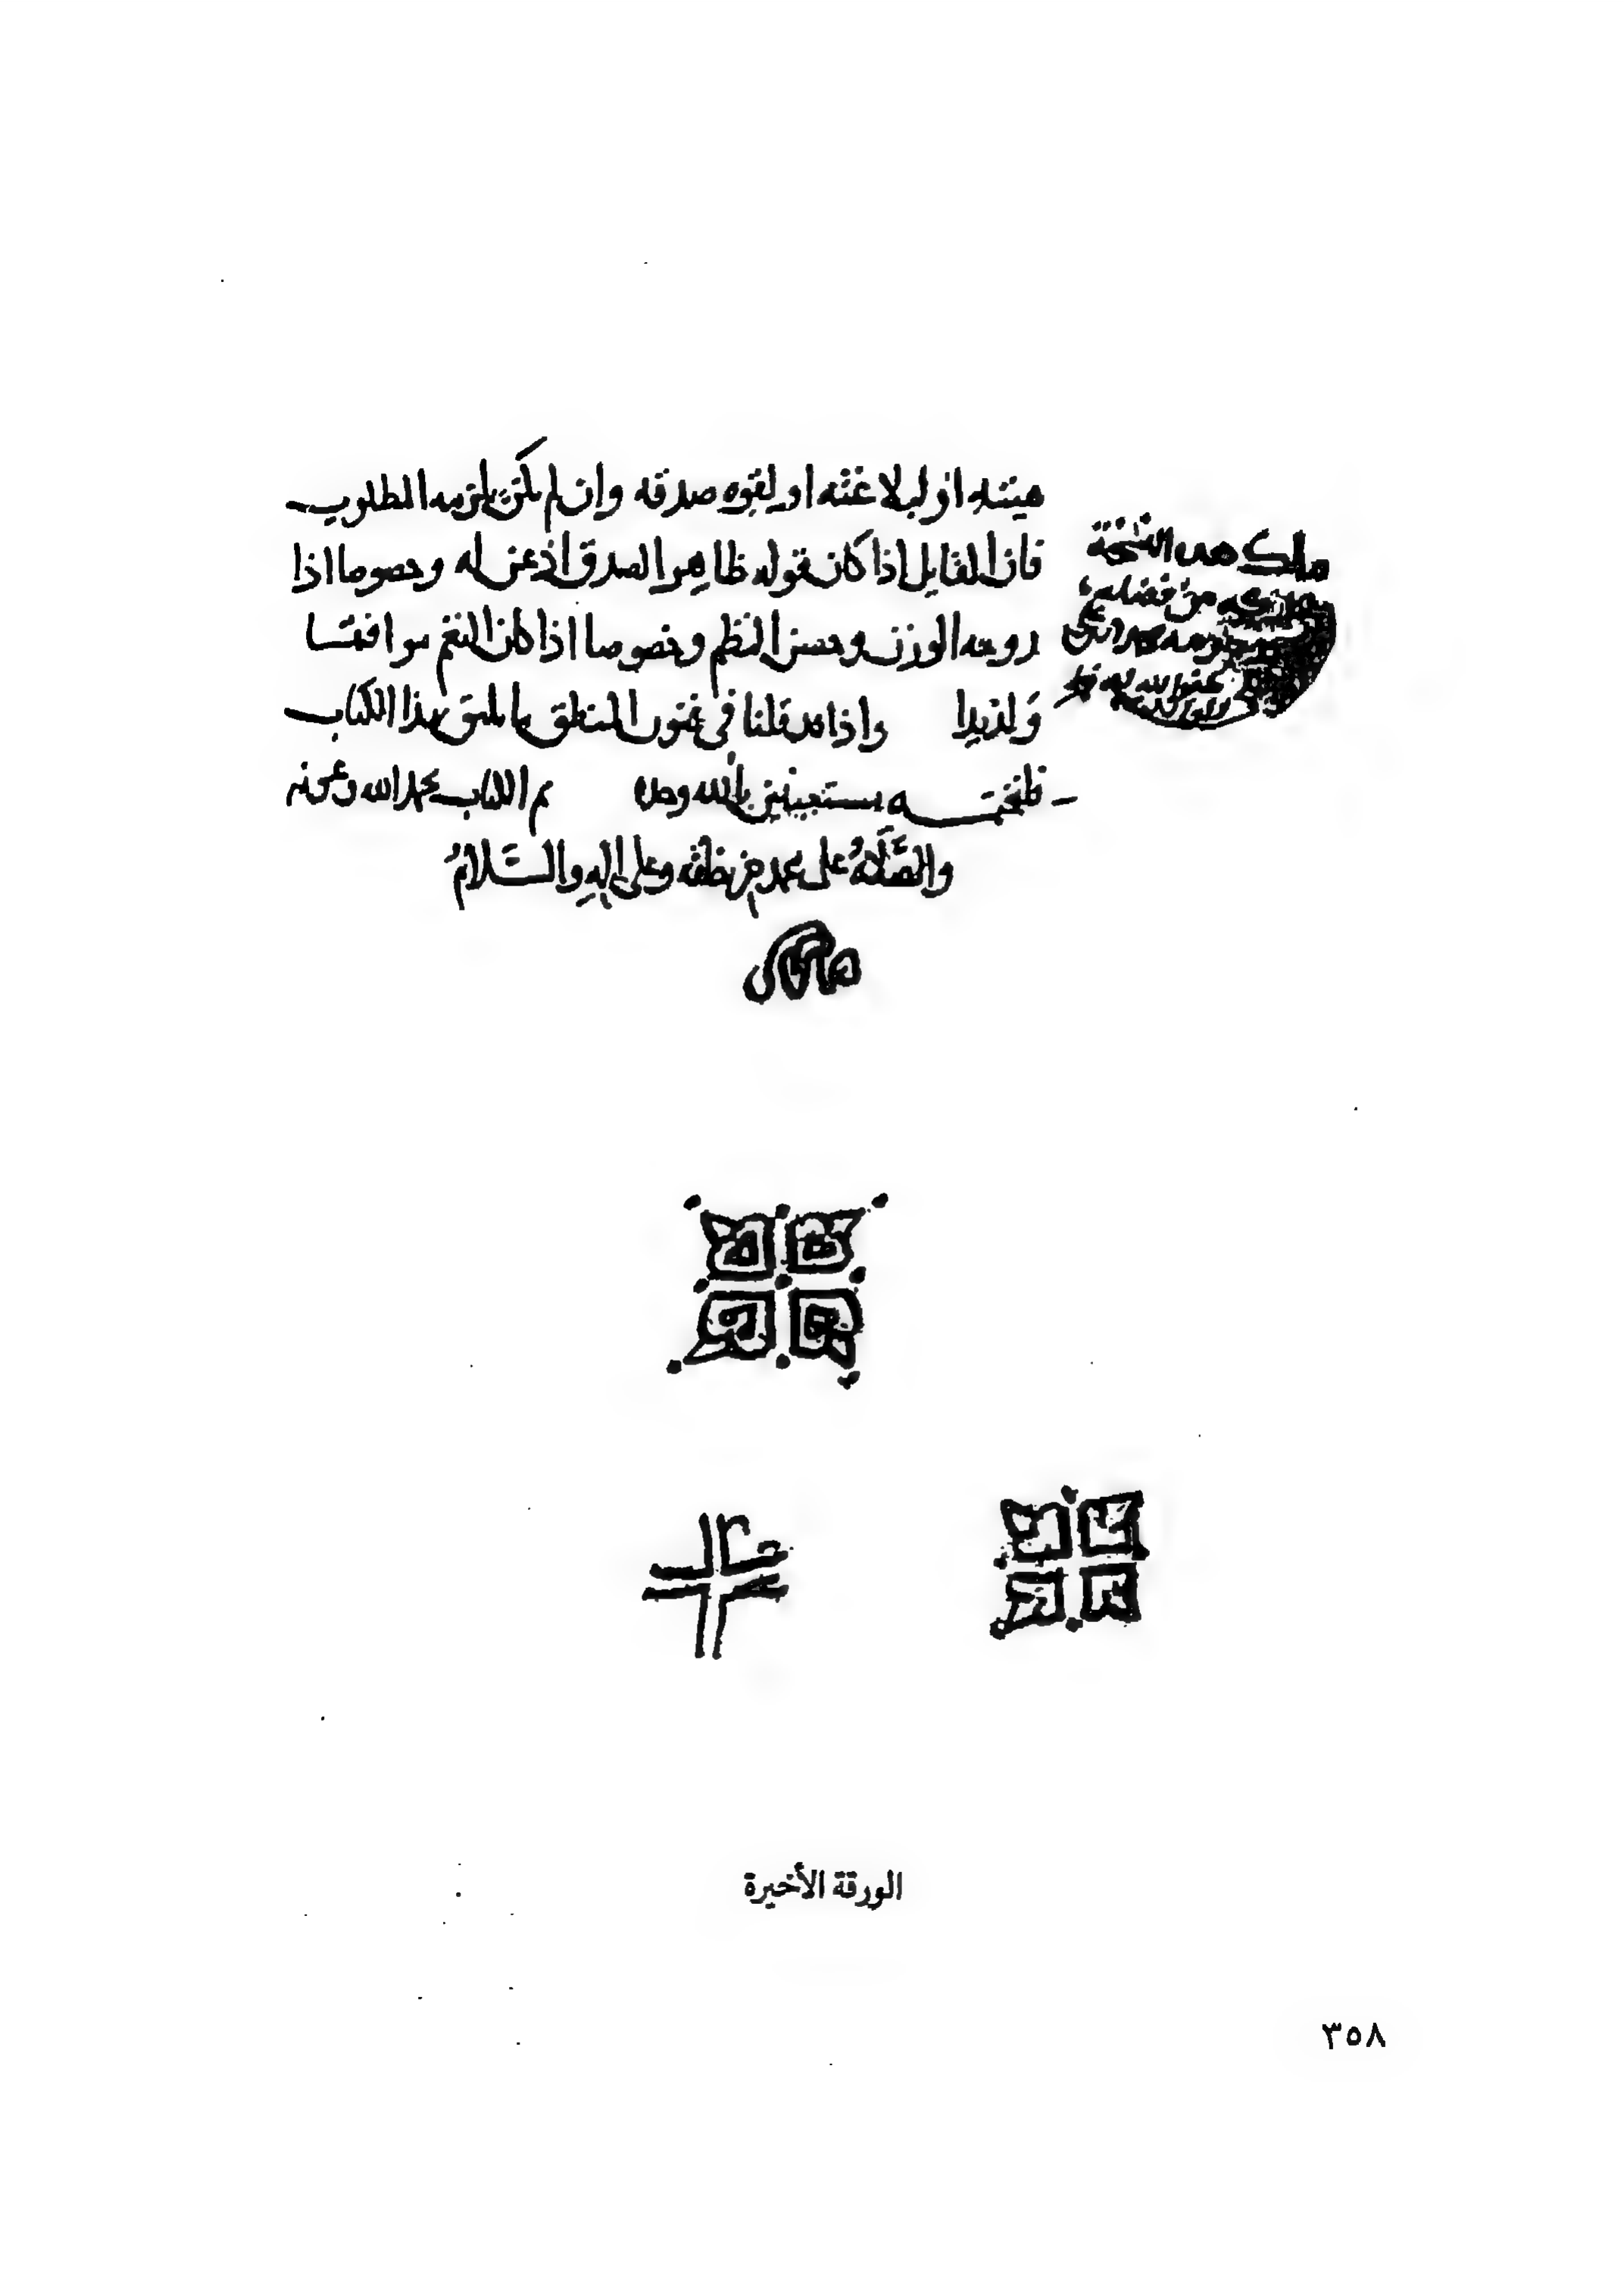 هيئته او لبلاغته او لقوه صدقه وان لم يكن يلزمه المطلوب
فان القايل اذا كان قوله ظاهر الصدق اذعن له وخصوصا اذا
روعى الوزن وحسن النظم وخصوصا اذا كان النغم موافقا
ولذيذا واذا قد قلنا فى فنون المنطق ما يليق بهذا الكتاب
فلنختمه مستعينين بالله وحده تم الكتاب بحمد الله وعونه
والصلاة على محمد خير خلقه وعلى اله والسلام
ملك هذه النسخة
من فضله
عفى الله
الورقة الأخيرة
٣٥٨